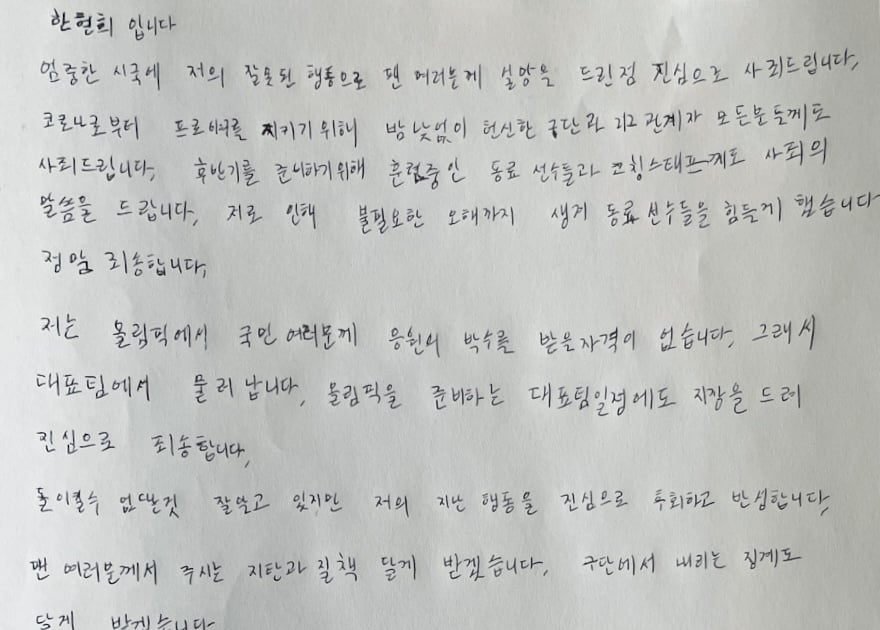 한현희 입니다
엄중한 시국에 저의 잘못된 행동으로 팬 여러분께 실망을 드린점 진심으로 사죄드립니다.
코로나로부터 프로야구를 지키기 위해 밤낮없이 헌신한 구단과 리그 관계자 모든분들께도
사죄드립니다. 후반기를 준비하기위해 훈련중인 동료 선수들과 코칭스태프께도 사죄의
말씀을 드립니다. 저로 인해 불필요한 오해까지 생겨 동료 선수들을 힘들게 했습니다
정말 죄송합니다.
저는 올림픽에서 국민 여러분께 응원의 박수를 받을자격이 없습니다. 그래서
대표팀에서 물러납니다. 올림픽을 준비하는 대표팀일정에도 지장을 드려
진심으로 죄송합니다.
돌이킬수 없다는것 잘알고 있지만 저의 지난 행동을 진심으로 후회하고 반성합니다.
팬 여러분께서 주시는 지탄과 질책 달게 받겠습니다. 구단에서 내리는 징계도
달게 받겠습니다